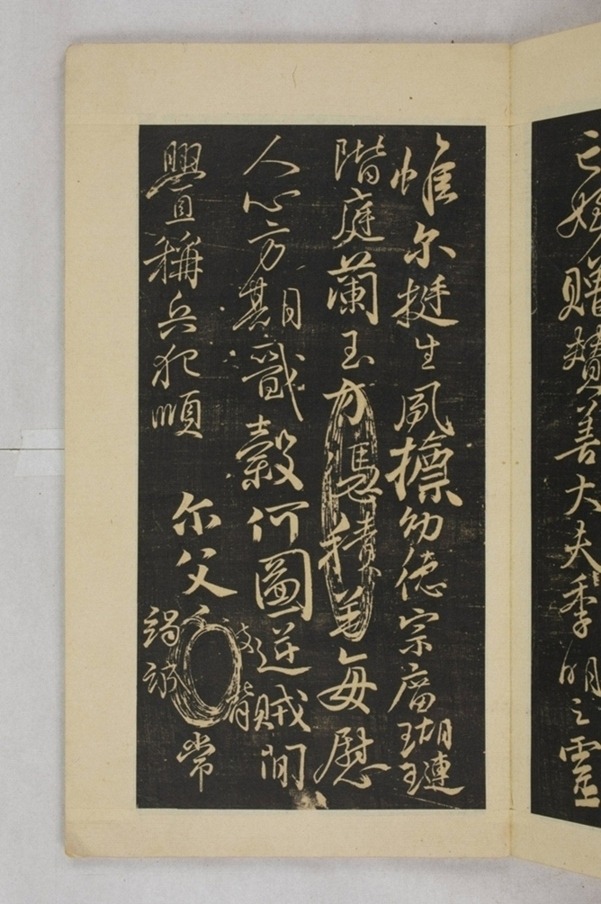 亡姪贈賛善大夫季明之靈
惟尔挺生夙摽幼德宗廟瑚璉
階庭蘭玉方憑積善每慰
人心方期戩穀何圖逆賊閒
舋稱兵犯順尔父竭誠常
被脅